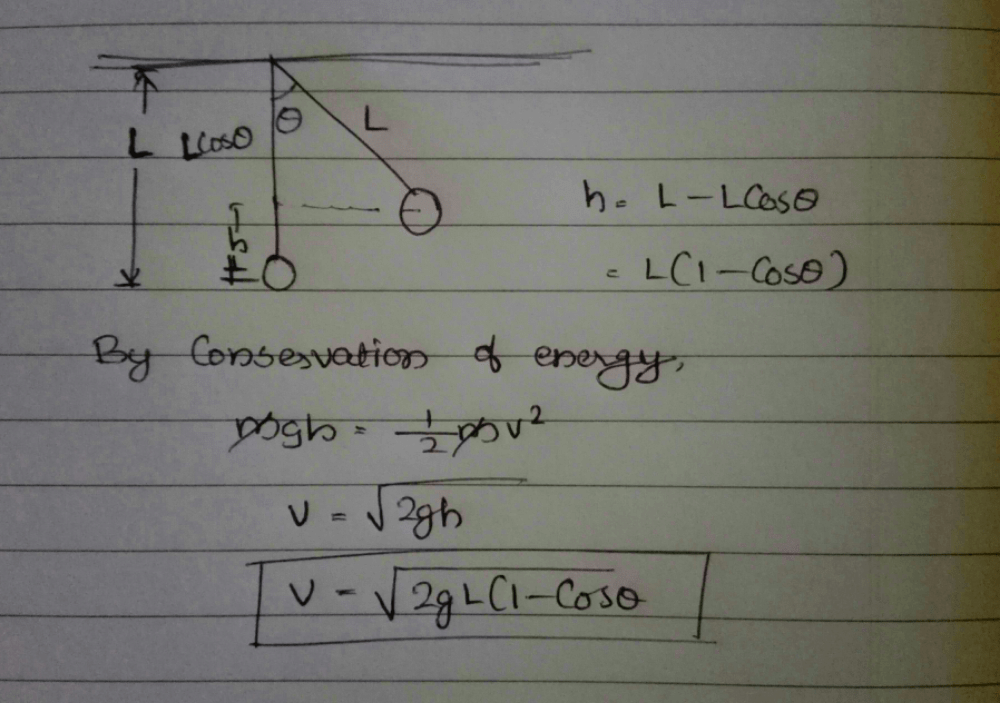 L Lcosθ θ L
h
h = L - LCosθ
= L(1 - Cosθ)
By Conservation of energy,
mgh = 1/2 mv²
v = √2gh
v = √2gL(1 - Cosθ